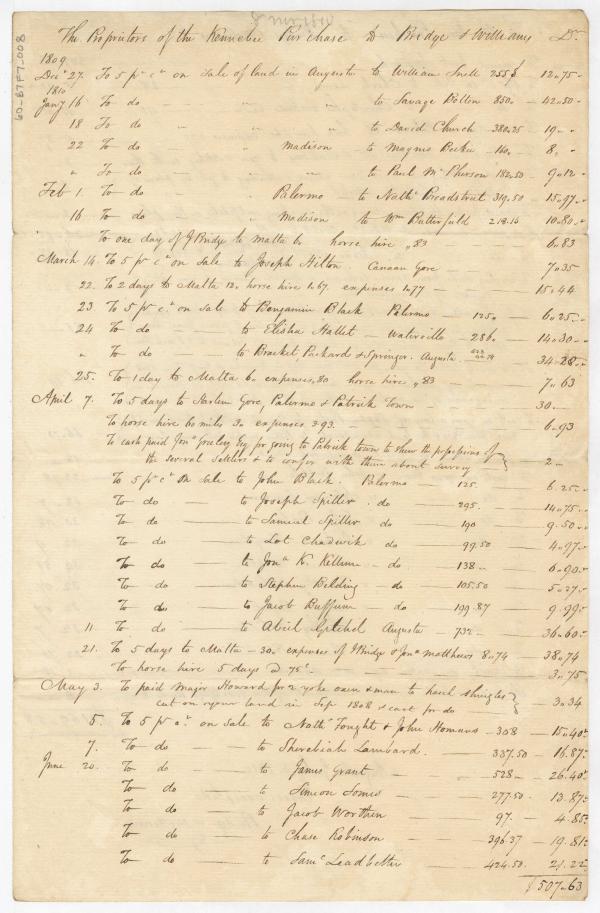 60-B7F7-008
The Proprietors of the Kennebec Purchase to Bridge & Williams Dr
1809
Decr 27. To 5 pr ct on sale of land in Augusta to William Snell 255$ 12.75
1810
Jany 16 To do " " " to Savage Bolton 850. 42.50
18 To do " " " to David Church 380.25 19. "
22 To do " Madison to Magnus 160. 8. "
" To do " " to Paul McPherson 182.50 9.12
Feb 1 To do " Palermo to Nathl Broadstreet 319.50 15.97
16 To do " Madison to Wm Butterfield 10.80
To one day of J Bridge to Malta 6. horse hire .83 6.83
March 14. To 5 pr ct on sale to Joseph Hilton Canaan Gore 7.35
22. To 2 days to Malta 12. horse hire 1.67. expenses 1.77 15.44
23. To 5 pr ct on sale to Benjamin Black Palermo 125. 6.25
24 To do to Elisha Hallet Waterville 286. 14.30
" To do to Bracket Packard & Springer. Augusta 34.28
25. To 1 day to Malta 6. expenses .80 horse hire .83 7.63
April 7. To 5 days to Harlem Gore, Palermo & Patrick Town 30.
To horse hire 60 miles 3. expenses 3.93. 6.93
To cash paid Jona Greeley Esq for going to Patrick town to shew the possessions of
the several settlers & to confer with them about survey 2.
To 5 pr ct on sale to John Black. Palermo 125. 6.25
To do to Joseph Spiller. do 295. 14.75
To do to Samuel Spiller do 190 9.50
To do to Lot Chadwick do 99.50 4.97
To do to Jona K. Kellum do 138. 6.90
To do to Stephen Belding do 105.50 5.27
To do to Jacob Buffum do 199.87 9.99
11. To do to Abiel Getchel Augusta 732. 36.60
21. To 5 days to Malta 30. expenses of J Bridge & Jona Matthews 8.74 38.74
To horse hire 5 days @ 75c 3.75
May 3. To paid Major Howard for 2 yoke oxen & man to haul shingles
cut on your land in Sep 1808 & cart for do 3.34
5. To 5 pr ct on sale to Nathl Fought & John Homans 308 15.40
7. To do to Sherebiah Lambard. 337.50 16.87
June 20. To do to James Grant 528. 26.40
To do to Simeon Somes 277.50 13.87
To do to Jacob Worthen 97. 4.85
To do to Chase Robinson 396.37 19.81
To do to Saml Leadbetter 424.50 21.22
$507.63